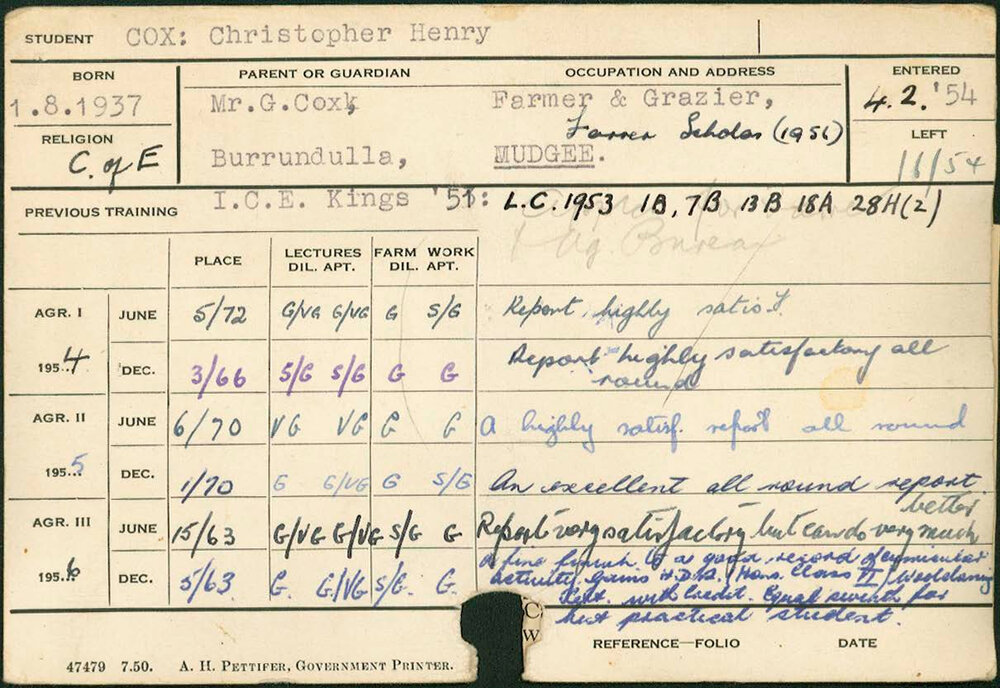 STUDENT COX: Christopher Henry
BORN PARENT OR GUARDIAN OCCUPATION AND ADDRESS ENTERED
1.8.1937 Mr.G.Cox, Farmer & Grazier, 4.2.'54
Farrer Scholar (1956)
RELIGION LEFT
C. of E Burrundulla, MUDGEE.
PREVIOUS TRAINING I.C.E. Kings '51: L.C. 1953 1B, 7B 13B 18A 28H(2)
Ag. Bureau
PLACE LECTURES FARM WORK
DIL. APT. DIL. APT.
AGR. I JUNE 5/72 G/VG G/VG G S/G Report highly satisf
1954 DEC. 3/66 S/G S/G G G Report highly satisfactory all
round
AGR. II JUNE 6/70 VG VG G G A highly satisf. report all round
1955 DEC. 1/70 G G/VG G S/G An excellent all round report.
better
AGR. III JUNE 15/63 G/VG G/VG S/G G Report very satisfactory but can do very much
1956 DEC. 5/63 G. G/VG S/G. G a fine finish to a good record of
activity. Gains H.D.A. Hons. Class II Woolclassing
Cert. with Credit. Equal seventh for
best practical student.
C
W
REFERENCE—FOLIO DATE
47479 7.50. A. H. PETTIFER, GOVERNMENT PRINTER.